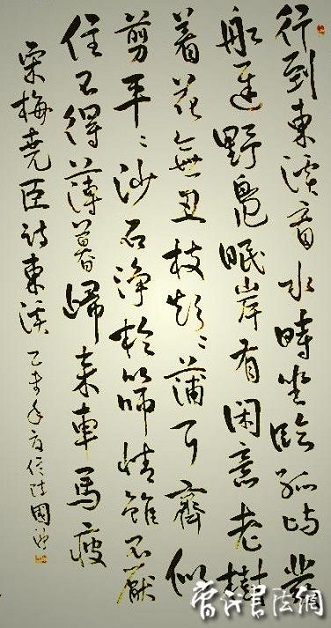 行到東溪看水時坐臨孤嶼發
船遲野鳧眠岸有閑意老樹
着花無丑枝短〻蒲耳齊似
剪平〻沙石淨於篩情雖不厭
住不得薄暮歸來車馬疲
宋梅堯臣詩東溪 乙未年